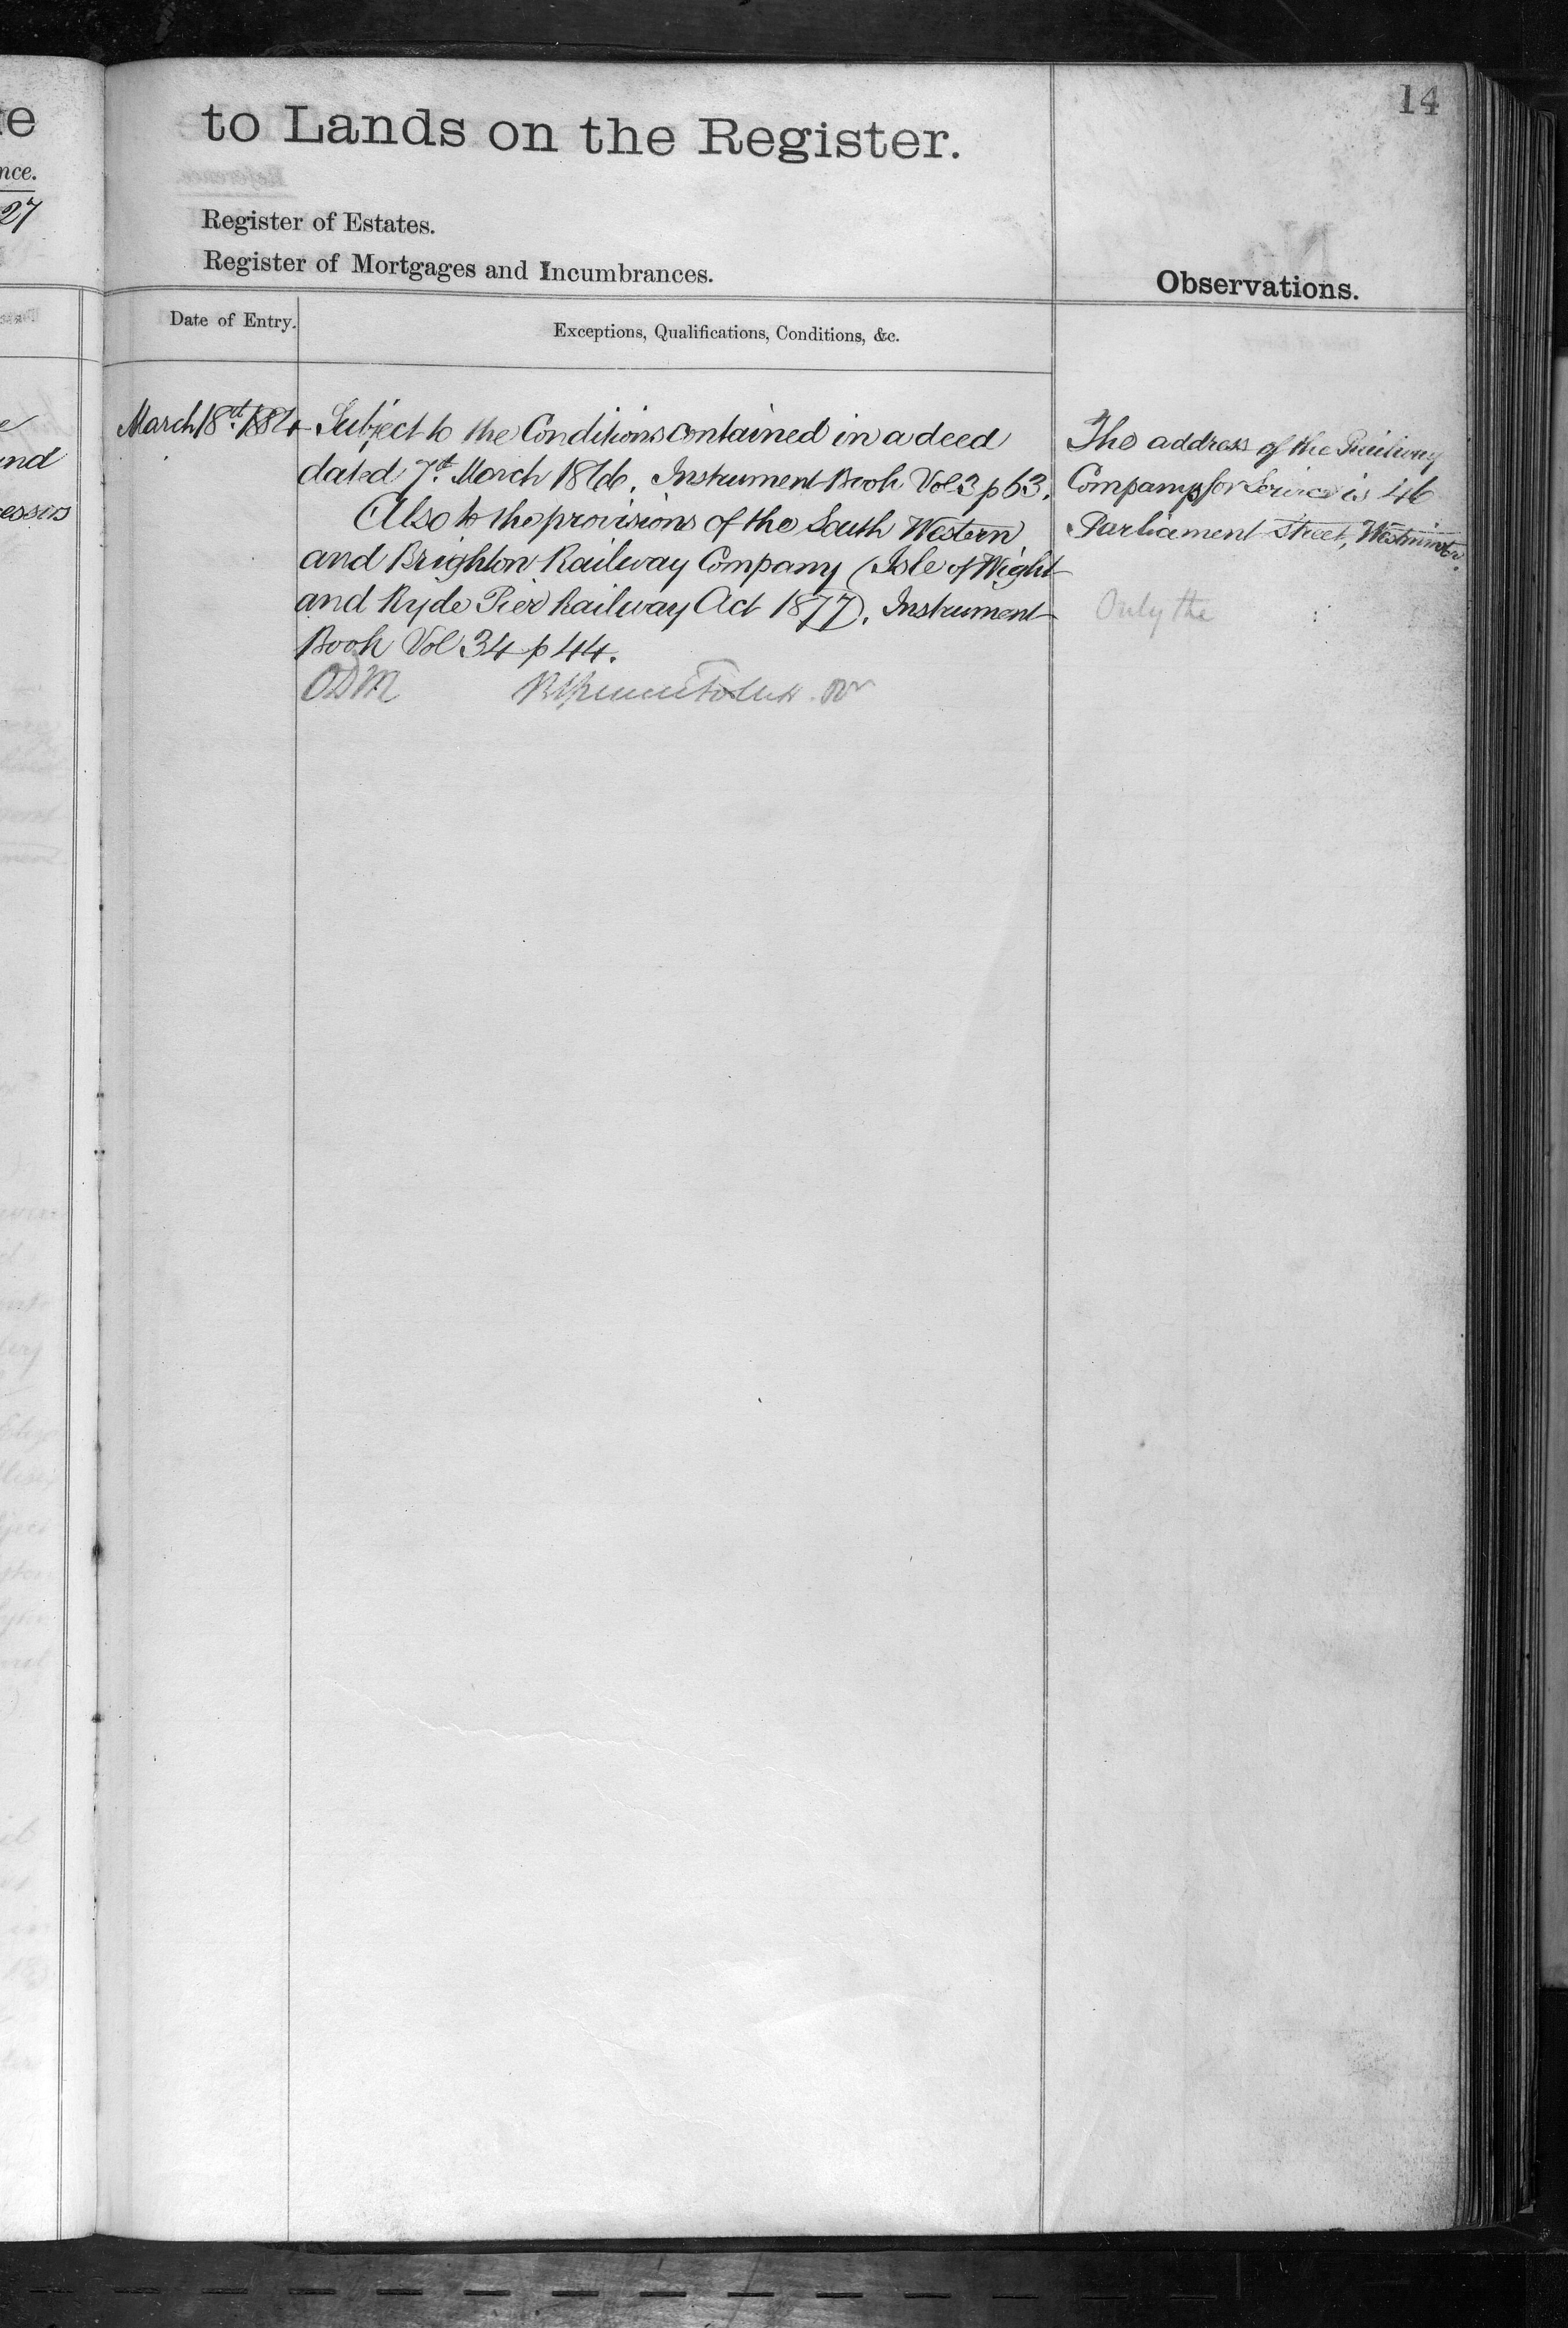 14
to Lands on the Register.
Register of Estates.
Register of Mortgages and Incumbrances.
Observations.
Date of Entry.
Exceptions, Qualifications, Conditions, &c.
nce.
27
and
March 18th 1884
Subject to the Conditions contained in a deed
dated 7th March 1866. Instrument Book Vol 3 p 63.
Also to the provisions of the South Western
and Brighton Railway Company (Isle of Wight
and Ryde Pier Railway Act 1877). Instrument
Book Vol 34 p 44.
ODM
The address of the Railway
Company for Service is 46
Parliament Street, Westminster.
Only the